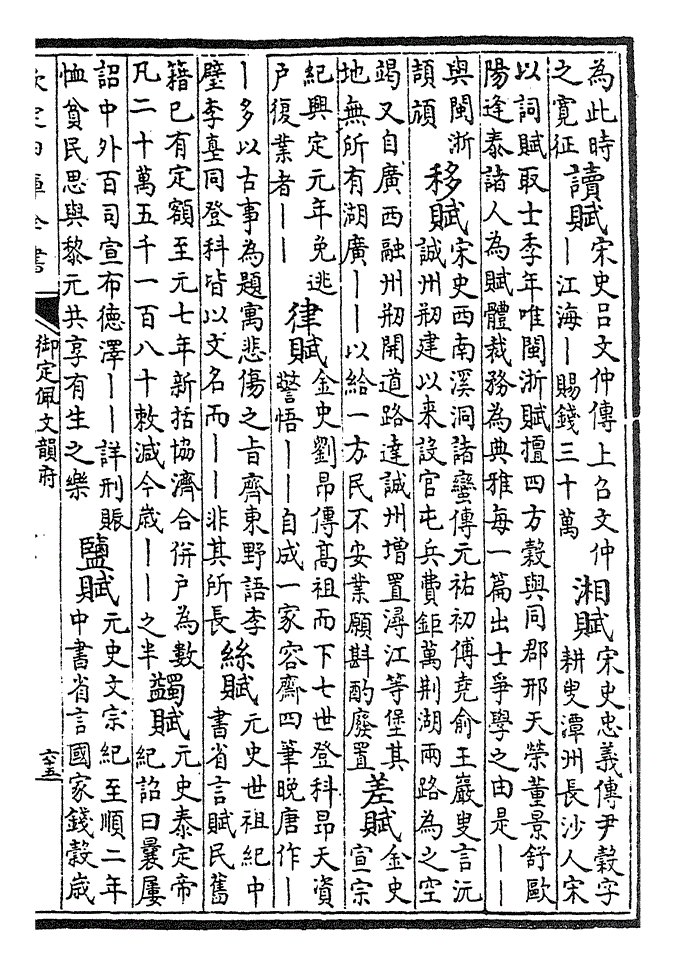 為此時
之寛征
讀賦
宋史吕文仲傳上召文仲
｜江海｜賜錢三十萬
湘賦
宋史忠義傳尹榖字
耕叟潭州長沙人宋
以詞賦取士季年唯閩浙賦擅四方榖與同郡邢天榮董景舒歐
陽逢泰諸人為賦體裁務為典雅每一篇出士爭學之由是｜｜
與閩浙
頡頏
移賦
宋史西南溪洞諸蠻傳元祐初傅堯俞王巖叟言沅
誠州剏建以来設官屯兵費鉅萬荆湖兩路為之空
竭又自廣西融州剏開道路達誠州增置潯江等堡其
地無所有湖廣｜｜以給一方民不安業願斟酌廢置
差賦
金史
宣宗
紀興定元年免逃
户復業者｜｜
律賦
金史劉昂傳髙祖而下七世登科昂天資
警悟｜｜自成一家容齋四筆晚唐作｜
｜多以古事為題寓悲傷之旨齊東野語李
璧李𡌴同登科皆以文名而｜｜非其所長
絲賦
元史世祖紀中
書省言賦民舊
籍已有定額至元七年新括協濟合併户為數
凡二十萬五千一百八十敕減今歲｜｜之半
蠲賦
元史泰定帝
紀詔曰曩屢
詔中外百司宣布德澤｜｜詳刑賑
恤貧民思與黎元共享有生之樂
鹽賦
元史文宗紀至順二年
中書省言國家錢榖歲
欽定四庫全書
御定佩文韻府
六十五